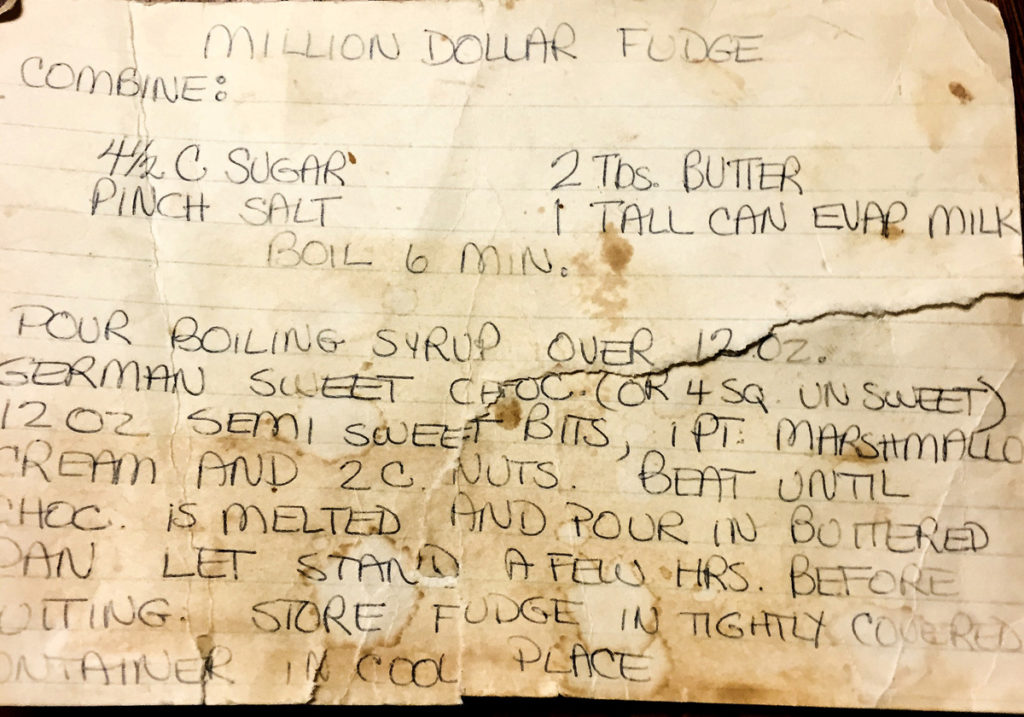 MILLION DOLLAR FUDGE
COMBINE:
4½ C SUGAR 2 Tbs. BUTTER
PINCH SALT 1 TALL CAN EVAP. MILK
BOIL 6 MIN.
POUR BOILING SYRUP OVER 12 OZ.
GERMAN SWEET CHOC. (OR 4 SQ. UNSWEET)
12 OZ SEMI SWEET BITS, 1 PT. MARSHMALLO
CREAM AND 2 C. NUTS. BEAT UNTIL
CHOC. IS MELTED AND POUR IN BUTTERED
PAN LET STAND A FEW HRS. BEFORE
CUTTING. STORE FUDGE IN TIGHTLY COVERED
CONTAINER IN COOL PLACE